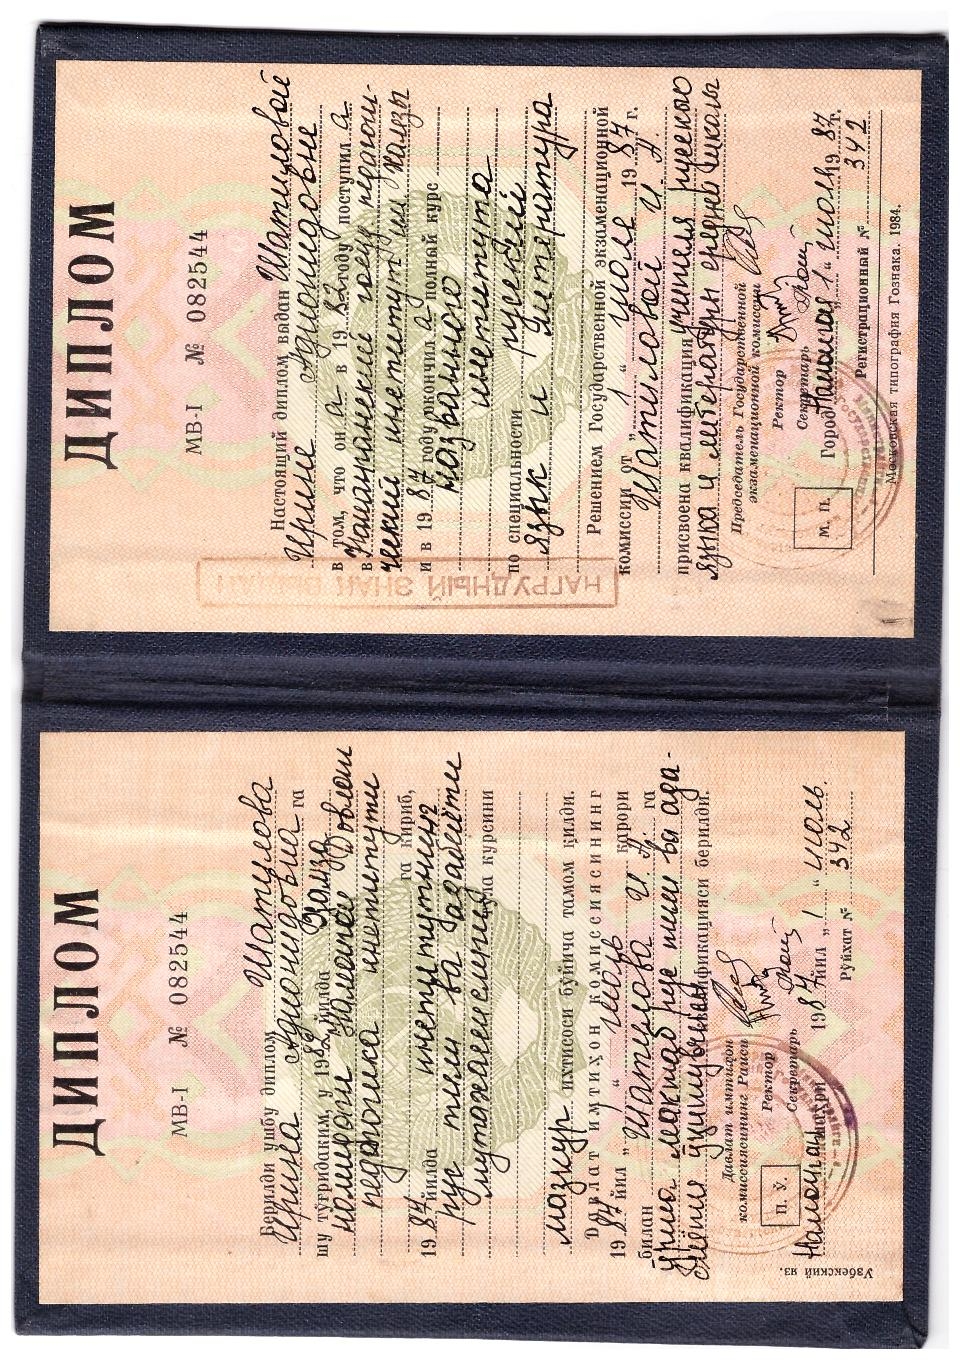 ДИПЛОМ
МВ-I № 082544
Берилди ушбу диплом Шатилова
Ирина Адионидовна га
шу тўғридаким, у 1982 йилда Ҳамза
номидаги Наманган Давлат
педагогика институти
га кириб,
1987 йилда институтнинг
рус тили ва адабиёти
мутахассислиги
ча курсини
мазкур ихтисоси бўйича тамом қилди.
Давлат имтиҳон комиссиясининг
1987 йил „1“ июль қарори
билан Шатилова И. А. га
ўрта мактаб рус тили ва ада-
биёти ўқитувчиси квалификацияси берилди.
Давлат имтиҳон
комиссиясининг Раиси
Ректор
Секретарь
П. Ў.
Наманган шаҳри 1987 йил „1“ июль.
Рўйхат № 342
Узбекский яз.
ДИПЛОМ
МВ-I № 082544
Настоящий диплом выдан Шатиловой
Ирине Адионидовне
в том, что он а в 1982 году поступил а
в Наманганский госуд. педагоги-
ческий институт им. Хамзы
и в 1987 году окончил а полный курс
названного
института
по специальности русский
язык и литература
Решением Государственной экзаменационной
комиссии от „1“ июля 1987 г.
Шатиловой И. А.
присвоена квалификация учителя русского
языка и литературы средней школы
Председатель Государственной
экзаменационной комиссии
Ректор
Секретарь
М. П.
Город Наманган „1“ июля 1987 г.
Регистрационный № 342
Московская типография Гознака. 1984.
НАГРУДНЫЙ ЗНАК ВЫДАН